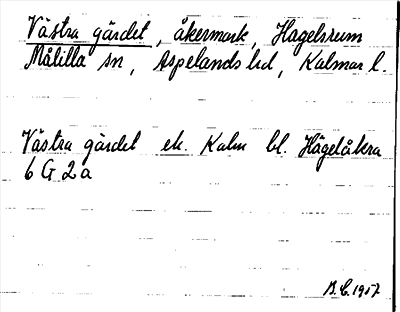 Västra gärdet, åkermark, Hagelsrum
Målilla sn, Aspelands hd, Kalmar l.
Västra gärdet ek. Kalm bl. Hägelåkra
6 G 2a
B.C. 1957